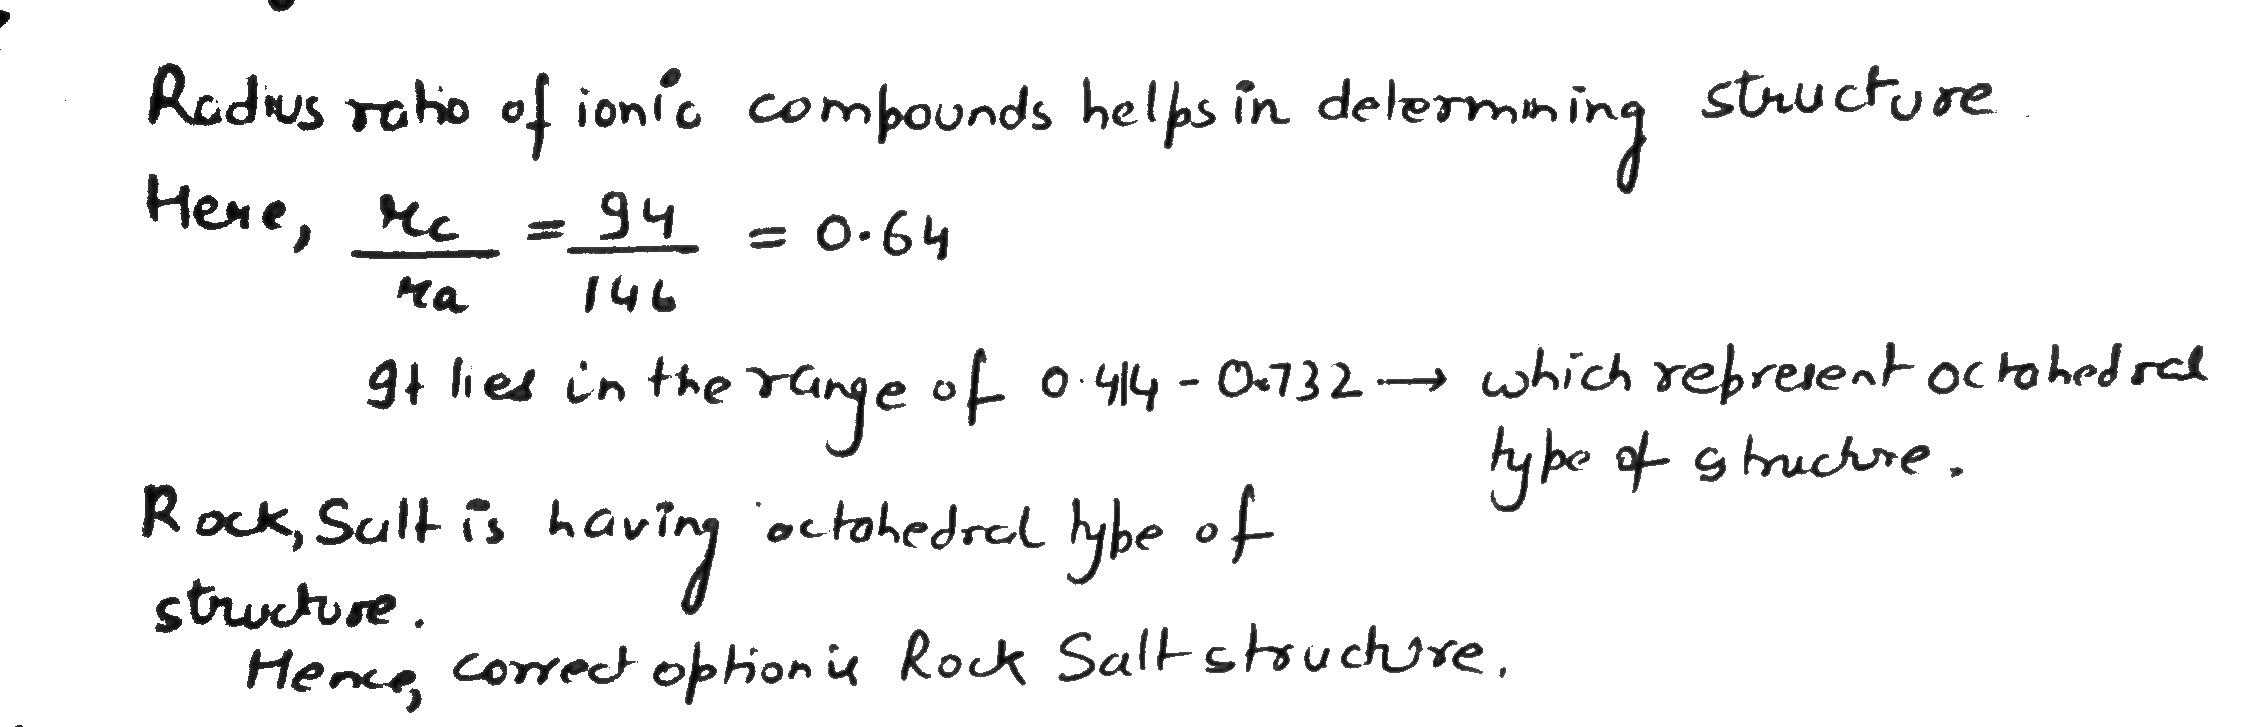 Radius ratio of ionic compounds helps in determining structure.
Here, rc/ra = 94/146 = 0.64
It lies in the range of 0.414 - 0.732 → which represent octahedral
type of structure.
Rock, Salt is having octahedral type of
structure.
Hence, correct option is Rock Salt structure.